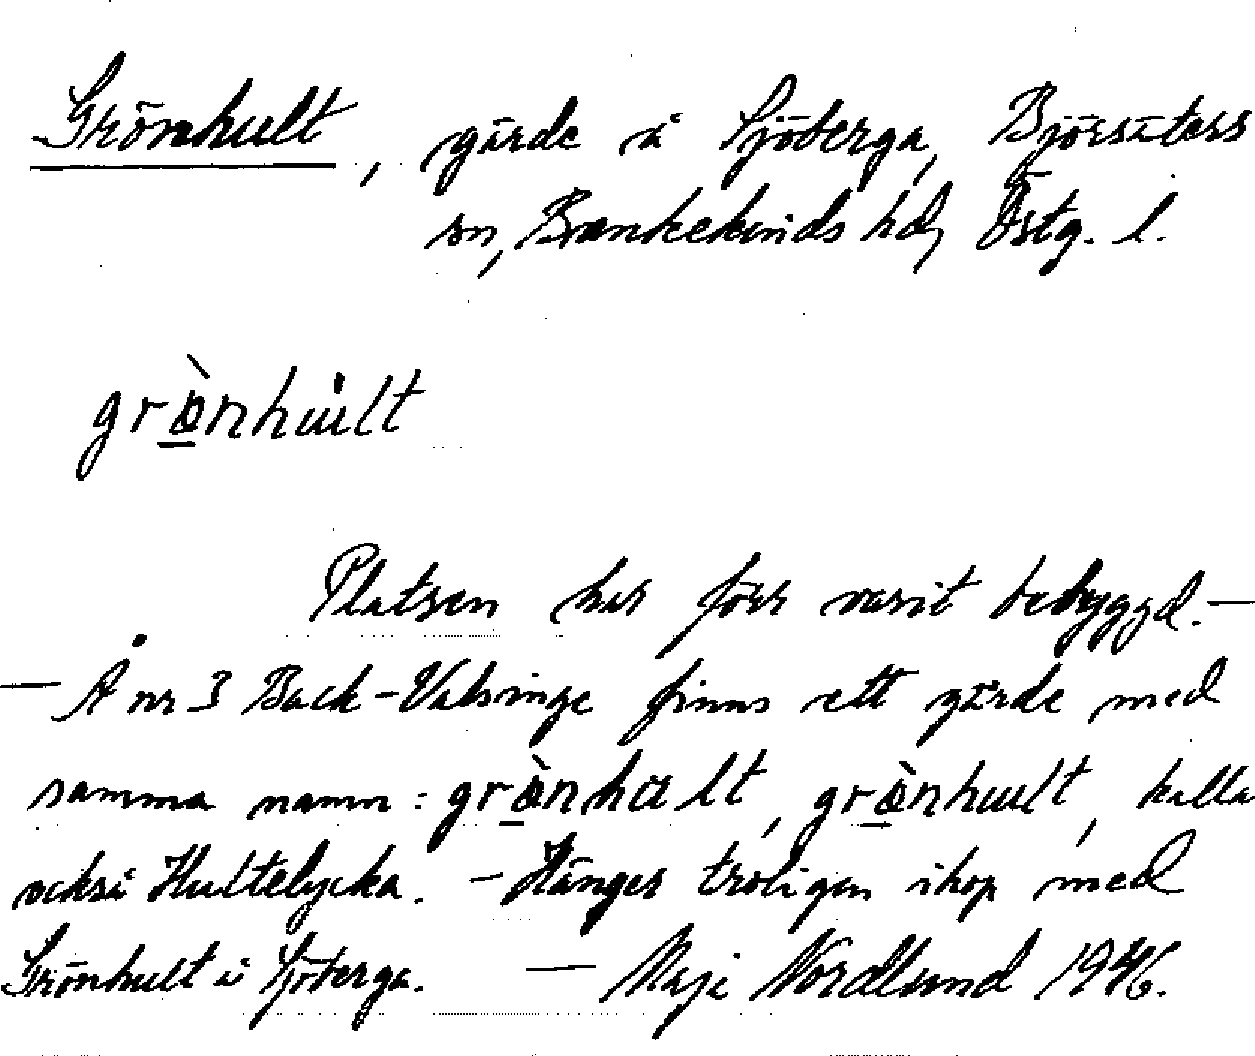 Grönhult, gärde å Sjöberga, Björsäters
sn, Bankekinds hd, Östg. l.
grö̀nhult
Platsen har förr varit bebyggd. —
— Å nr 3 Back-Valsinge finns ett gärde med
samma namn: grö̀nhult, grö̀nhult, kalla
också Hultelycka. — Hänger troligen ihop med
Grönhult å Sjöberga. — Maje Nordlund 1946.